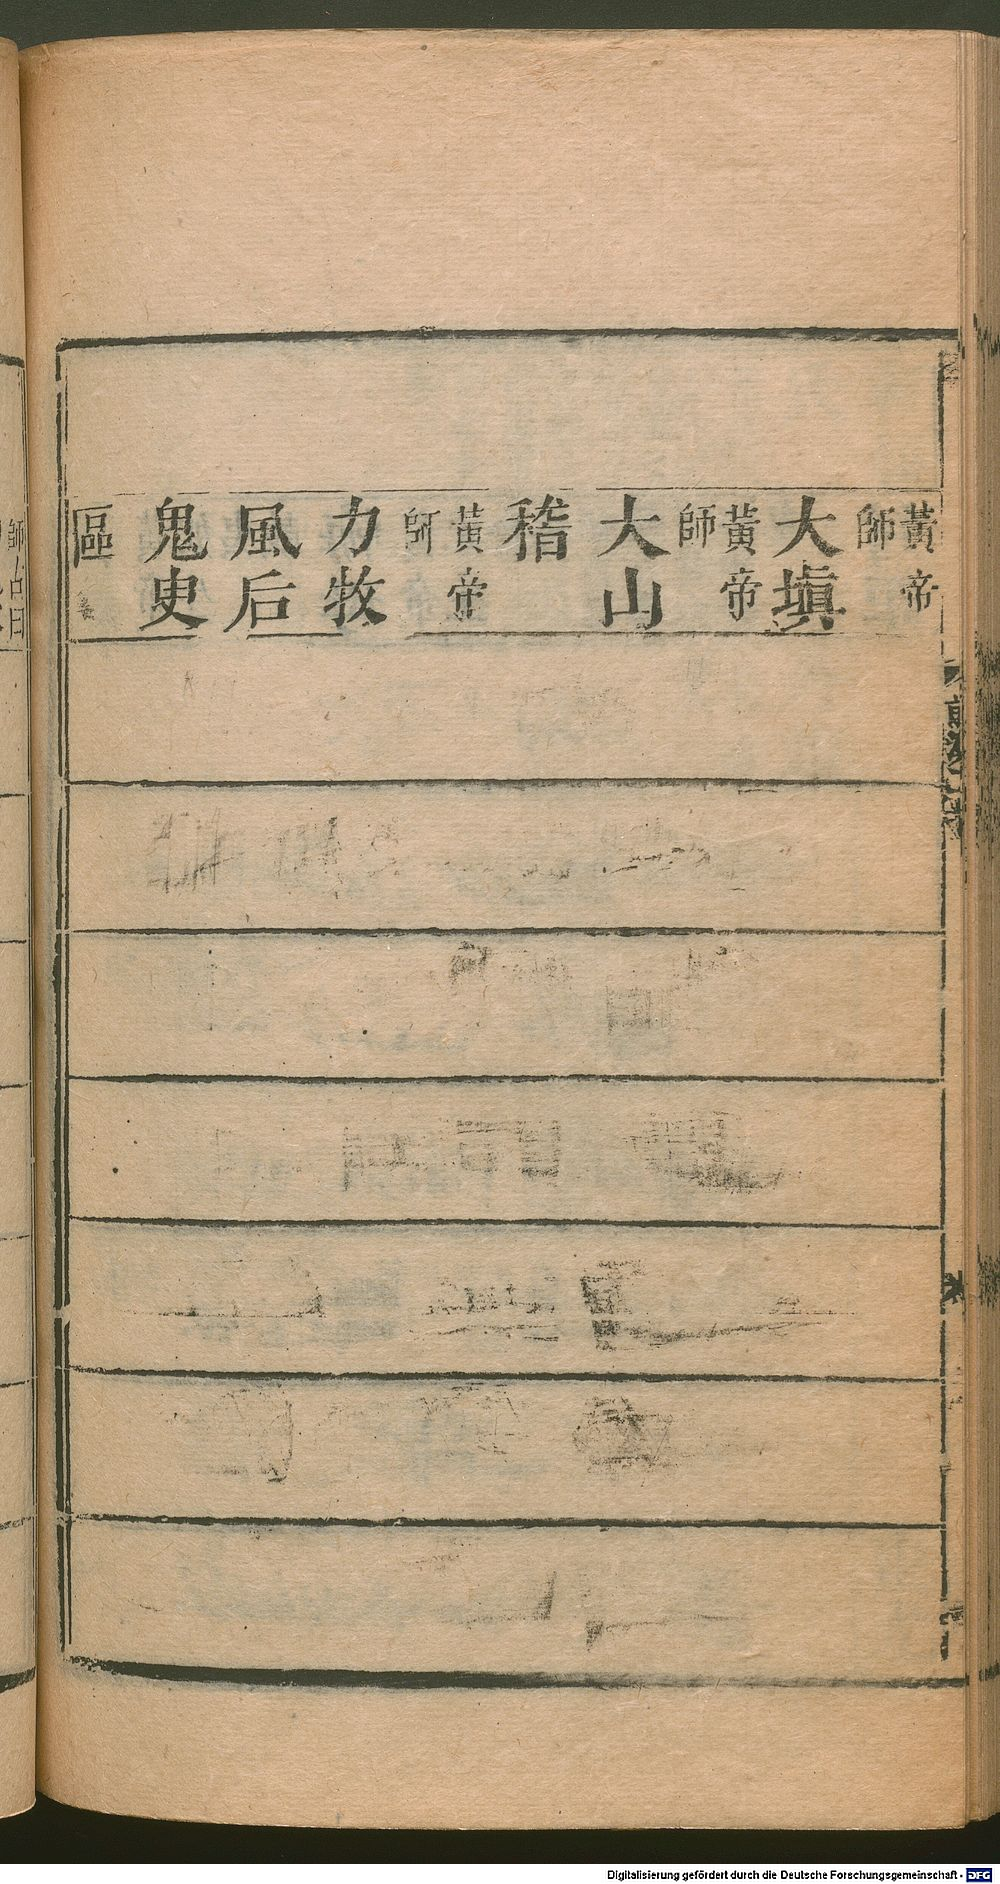 黃帝
師
大塡
黃帝
師
大山
稽
黃帝
師
力牧
風后
鬼臾
區
師古曰
Digitalisierung gefördert durch die Deutsche Forschungsgemeinschaft - DFG